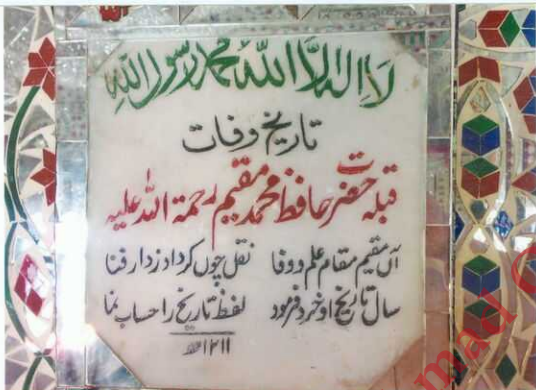 لا اله الا الله محمد رسول الله
تاریخ وفات
قبلہ حضرت حافظ محمد مقیم رحمۃ اللہ علیہ
آں مقیم مقام علم و وفا نقل چوں کرد از دار فنا
سال تاریخ او خرد فرمود لفظ تاریخ را حساب نما
۱۲۱۱ھ